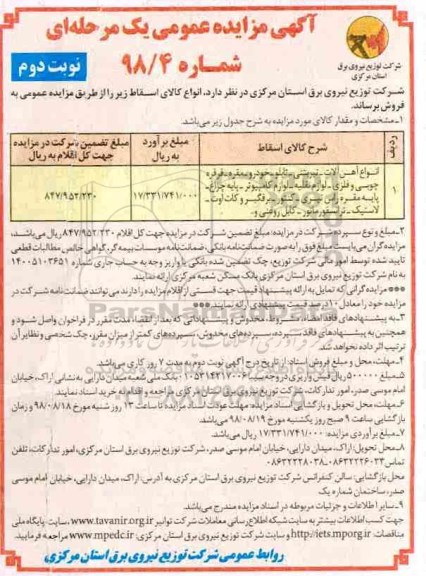 آگهی مزایده عمومی یک مرحله‌ای
شماره ۹۸/۴
نوبت دوم
شرکت توزیع نیروی برق
استان مرکزی
شرکت توزیع نیروی برق استان مرکزی در نظر دارد، انواع کالای اسقاط زیر را از طریق مزایده عمومی به
فروش برساند.
۱-مشخصات و مقدار کالای مورد مزایده به شرح جدول زیر می‌باشد.
ردیف
شرح کالای اسقاط
مبلغ برآورد
به ریال
مبلغ تضمین شرکت در مزایده
جهت کل اقلام به ریال
۱
انواع آهن آلات
چوبی و فلزی - لوازم نقلیه - لوازم کامپیوتر - پایه چراغ -
پایه مقره - کات اوت -
لاستیک - کابل روغنی و...
۱۷/۳۳۱/۷۴۱/۰۰۰
۸۴۷/۹۵۲/۲۳۰
۲-مبلغ و نوع سپرده شرکت در مزایده: مبلغ تضمین شرکت در مزایده جهت کل اقلام ۸۴۷/۹۵۲/۲۳۰ ریال می‌باشد،
مزایده گران می‌بایست مبلغ فوق را به صورت ضمانت‌نامه بانکی، ضمانت‌نامه موسسات بیمه گر، گواهی خالص مطالبات قطعی
تایید شده توسط امور مالی شرکت توزیع، چک تضمین شده بانکی یا واریز وجه به حساب جاری شماره ۱۴۰۰۵۱۰۳۶۵۱
به نام شرکت توزیع نیروی برق استان مرکزی بانک مسکن شعبه مرکزی ارائه نمایند.
***مزایده گرانی که تمایل به ارائه پیشنهاد قیمت جهت قسمتی از اقلام مزایده را دارند می‌توانند ضمانت‌نامه شرکت در
مزایده خود را معادل ۱۰ درصد قیمت پیشنهادی ارائه نمایند***
۳-به پیشنهادهای فاقد امضاء، مشروط، مخدوش و پیشنهاداتی که بعد از انقضاء مدت مقرر در فراخوان واصل شود و
همچنین به پیشنهادهای فاقد سپرده، سپرده‌های مخدوش، سپرده‌های کمتر از میزان مقرر، چک شخصی و نظایر آن
ترتیب اثر داده نخواهد شد.
۴-مهلت، محل و مبلغ فروش اسناد: از تاریخ درج آگهی نوبت دوم به مدت ۷ روز کاری می‌باشد.
۵-مبلغ ۵۰۰۰۰۰ ریال فیش واریزی در وجه سیبا ۰۱۰۵۳۱۴۳۱۷۰۰۶ بانک ملی شعبه میدان دارایی به نشانی اراک، خیابان
امام موسی صدر، امور تدارکات شرکت توزیع نیروی برق استان مرکزی مراجعه و اقدام به خرید اسناد نمایند.
۶-مهلت، محل تحویل و بازگشایی اسناد مزایده: مهلت عودت اسناد مزایده تا ساعت ۱۳ روز شنبه مورخ ۹۸/۰۸/۱۸ و زمان
بازگشایی ساعت ۹ صبح روز یکشنبه مورخ ۹۸/۰۸/۱۹ می‌باشد.
۷-مبلغ برآوردی مزایده: ۱۷/۳۳۱/۷۴۱/۰۰۰ ریال می‌باشد.
محل تحویل: اراک، میدان دارایی، خیابان امام موسی صدر، شرکت توزیع نیروی برق استان مرکزی، امور تدارکات، تلفن
تماس ۰۸۶۳۲۲۲۶۰۳۳-۰۸۶۳۲۲۲۸۰۳۸
محل بازگشایی: سالن کنفرانس شرکت توزیع نیروی برق استان مرکزی به آدرس: اراک، میدان دارایی، خیابان امام موسی
صدر، ساختمان شماره یک
۹-سایر اطلاعات و جزئیات مربوطه در اسناد مزایده مندرج می‌باشد.
جهت کسب اطلاعات بیشتر به سایت شبکه اطلاع رسانی معاملات شرکت توانیر www.tavanir.org.ir، سایت پایگاه ملی
مناقصات: http://iets.mporg.ir و سایت شرکت توزیع نیروی برق استان مرکزی: www.mpedc.ir مراجعه فرمایید.
روابط عمومی شرکت توزیع نیروی برق استان مرکزی